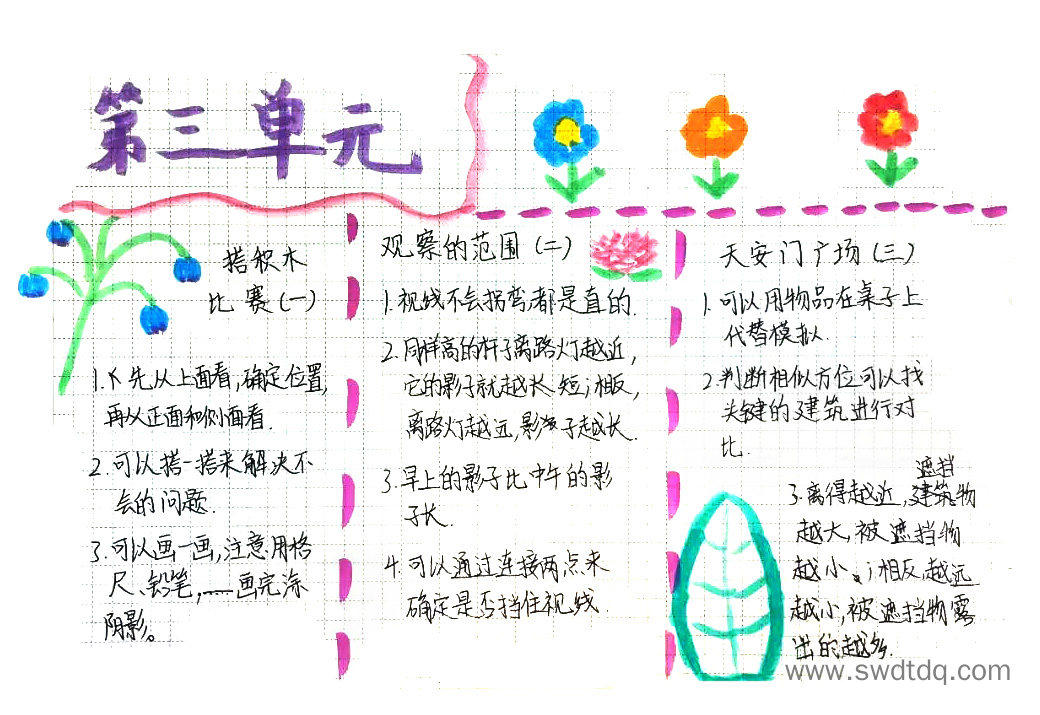 第三单元
搭积木
比赛(一)
1.先从上面看,确定位置,
再从正面和侧面看.
2.可以搭一搭来解决不
会的问题.
3.可以画一画,注意用格
尺、铅笔,……画完涂
阴影。
观察的范围(二)
1.视线不会拐弯,都是直的.
2.同样高的杆子离路灯越近,
它的影子就越长短;相反,
离路灯越远,影子越长.
3.早上的影子比中午的影
子长.
4.可以通过连接两点来
确定是否挡住视线.
天安门广场(三)
1.可以用物品在桌子上
代替模拟.
2.判断相似方位可以找
关键的建筑进行对
比.
遮挡
3.离得越近,建筑物
越大,被遮挡物
越小。;相反,越远
越小,被遮挡物露
出的越多.
www.swdtdq.com